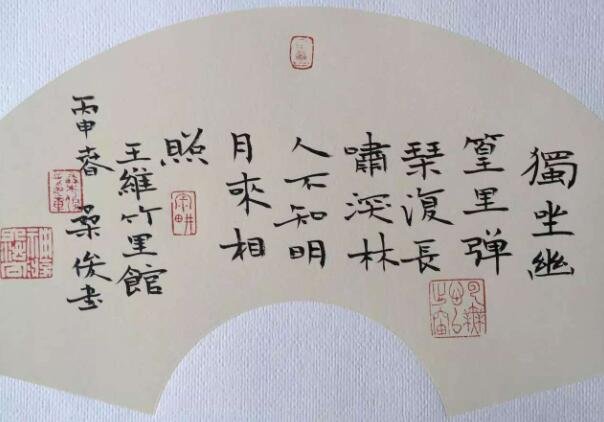 獨坐幽
篁里弹
琹復長
嘯深林
人不知明
月來相
照
王維竹里館
丙申春 桑俊書